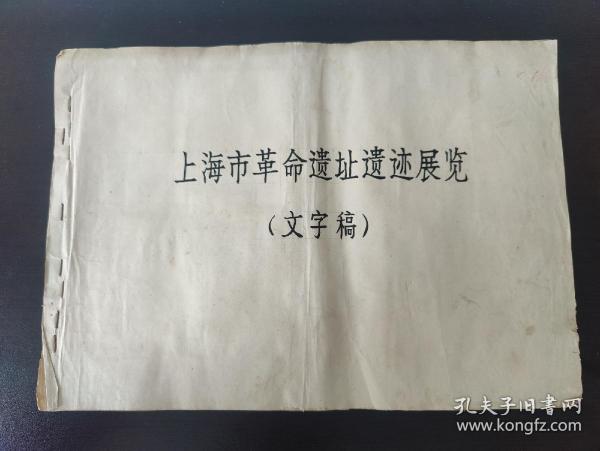 上海市革命遗址遗迹展览
（文字稿）
孔夫子旧書网
www.kongfz.com